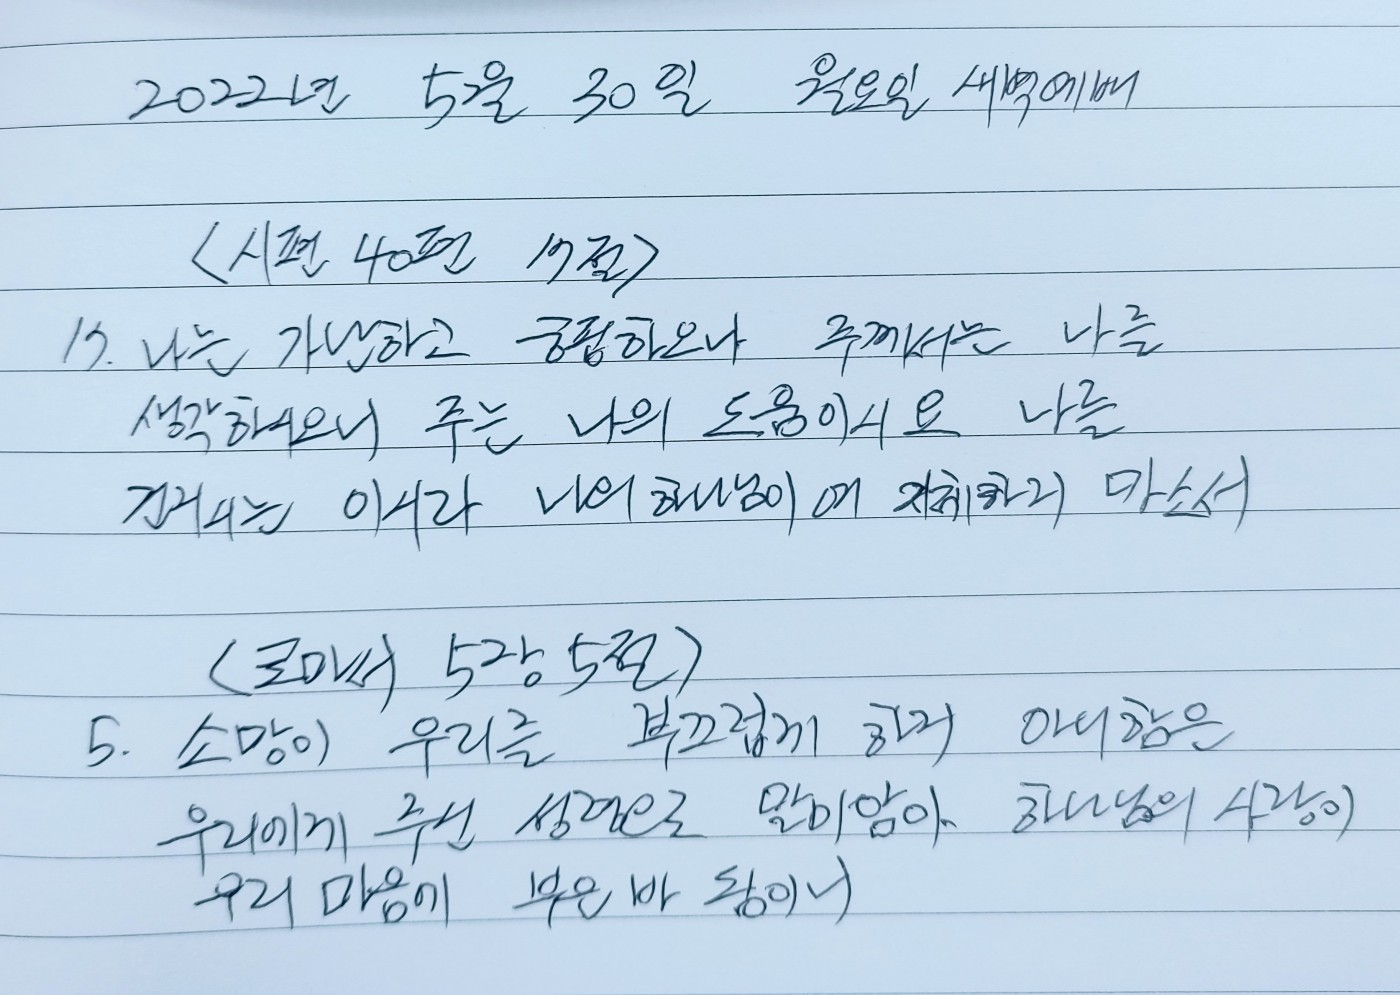 2022년 5월 30일 월요일 새벽예배
<시편 40편 17절>
17. 나는 가난하고 궁핍하오나 주께서는 나를
생각하시오니 주는 나의 도움이시요 나를
건지시는 이시라 나의 하나님이여 지체하지 마소서
<로마서 5장 5절>
5. 소망이 우리를 부끄럽게 하지 아니함은
우리에게 주신 성령으로 말미암아 하나님의 사랑이
우리 마음에 부은 바 됨이니